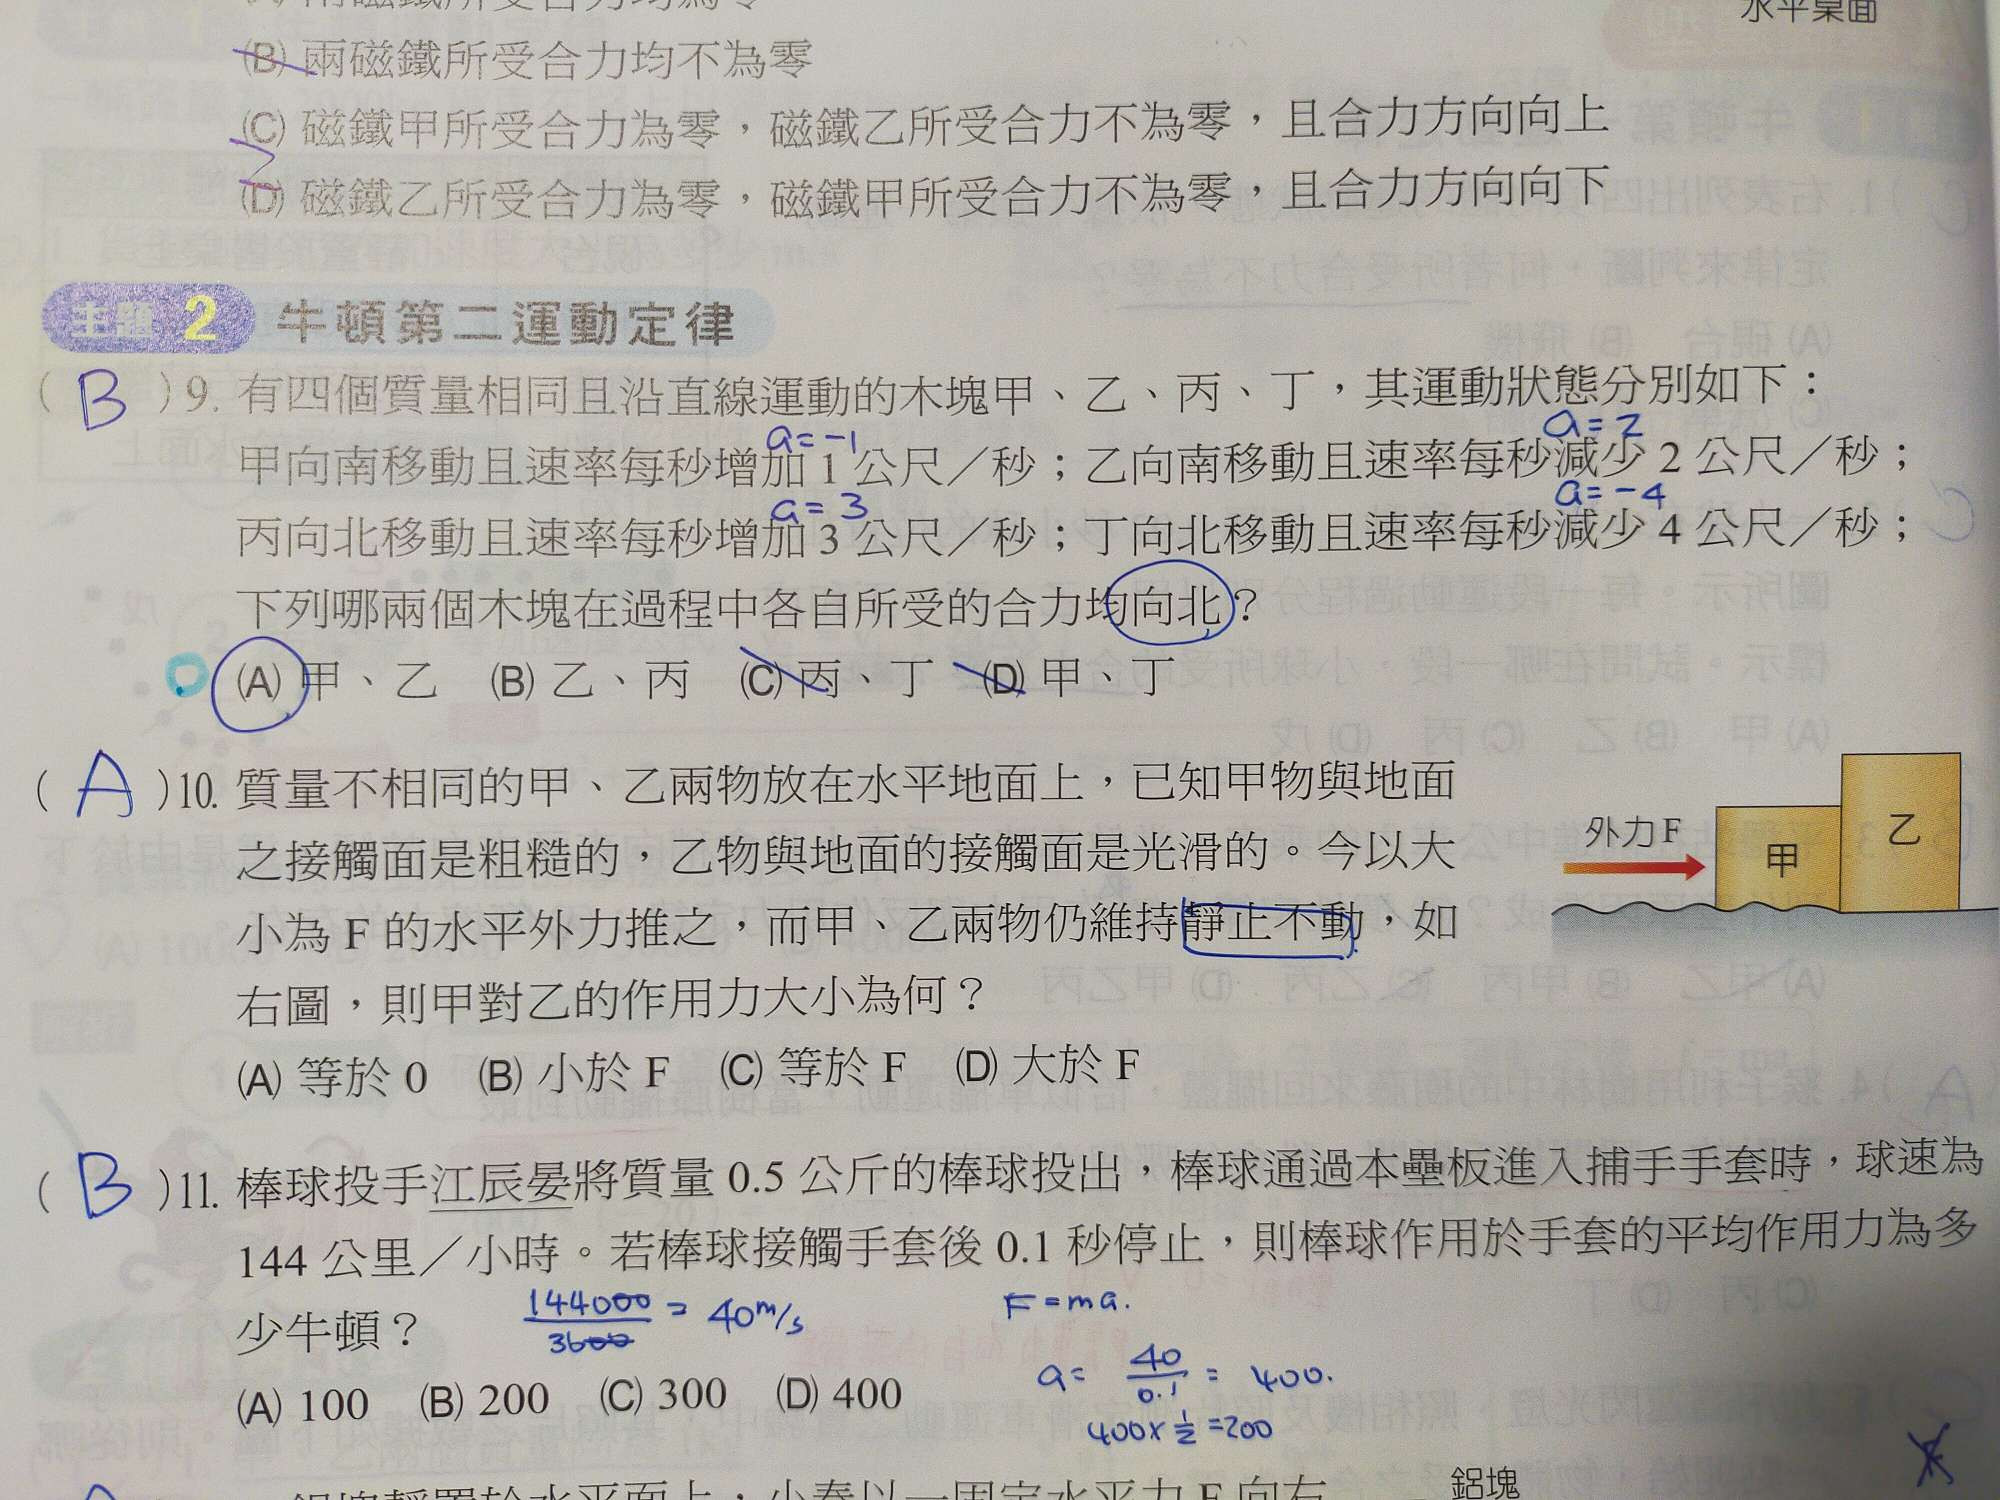 水平桌面
(B) 兩磁鐵所受合力均不為零
(C) 磁鐵甲所受合力為零，磁鐵乙所受合力不為零，且合力方向向上
(D) 磁鐵乙所受合力為零，磁鐵甲所受合力不為零，且合力方向向下
主題 2 牛頓第二運動定律
( B ) 9. 有四個質量相同且沿直線運動的木塊甲、乙、丙、丁，其運動狀態分別如下：
a=-1 a=2
甲向南移動且速率每秒增加 1 公尺／秒；乙向南移動且速率每秒減少 2 公尺／秒；
a=3 a=-4
丙向北移動且速率每秒增加 3 公尺／秒；丁向北移動且速率每秒減少 4 公尺／秒；
下列哪兩個木塊在過程中各自所受的合力均向北？
(A) 甲、乙 (B) 乙、丙 (C) 丙、丁 (D) 甲、丁
( A ) 10. 質量不相同的甲、乙兩物放在水平地面上，已知甲物與地面
之接觸面是粗糙的，乙物與地面的接觸面是光滑的。今以大
小為 F 的水平外力推之，而甲、乙兩物仍維持靜止不動，如
右圖，則甲對乙的作用力大小為何？
(A) 等於 0 (B) 小於 F (C) 等於 F (D) 大於 F
外力 F
甲
乙
( B ) 11. 棒球投手江辰晏將質量 0.5 公斤的棒球投出，棒球通過本壘板進入捕手手套時，球速為
144 公里／小時。若棒球接觸手套後 0.1 秒停止，則棒球作用於手套的平均作用力為多
少牛頓？
144000/3600 = 40 m/s
F=ma.
a= 40/0.1 = 400.
400×1/2=200
(A) 100 (B) 200 (C) 300 (D) 400
鋁塊